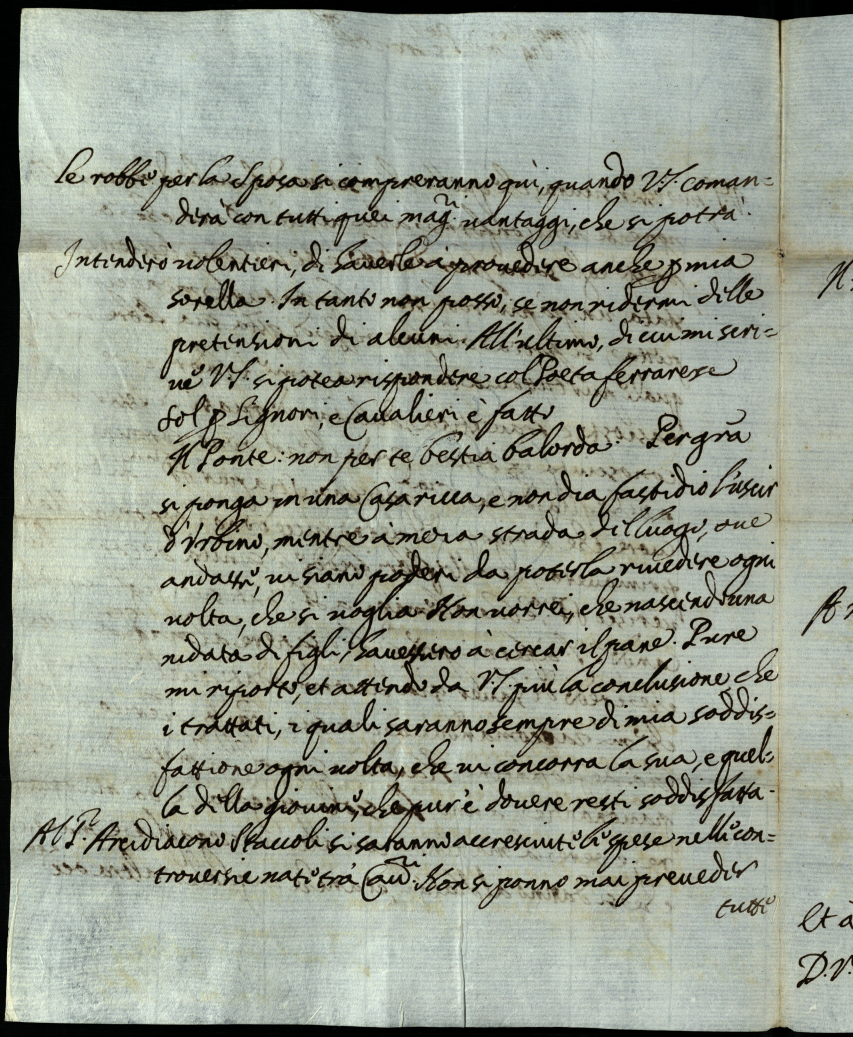 le robbe per la Sposa si compreranno quì, quando V.S. coman=
derà con tutti quei mag.ri vantaggi, che si potrà.
Intenderò volentieri, di haverle à provedere anche p mia
sorella. In tanto non posso, se non ridermi delle
pretensioni di alcuni. All'ultimo, di cui mi scri=
ve V.S. si potea rispondere col Poeta ferrarese
sol p Signori, e Cavalieri è fatto
Il Ponte: non per te bestia balorda. Per gra
si ponga in una Casa ricca, e non dia fastidio l'uscir
d'Urbino, mentre à meza strada del luogo, ove
andasse, vi siano poderi da poterla rivedere ogni
volta, che si voglia. Non vorrei, che nascendo una
nidata di figli, havessero à cercar il pane. Pure
mi riporto, et attendo da V.S. più la conclusione che
i trattati, i quali saranno sempre di mia soddis=
fattione ogni volta, che vi concorra la sua, e quel=
la della giovine, che pur'è dovere resti soddisfatta.
Al S.r Arcidiacono Staccoli si saranno accresciute le spese nelle con=
troversie nate trà Cau.ri. Non si ponno mai preveder
tutte
Il
A
Et à
D.V.